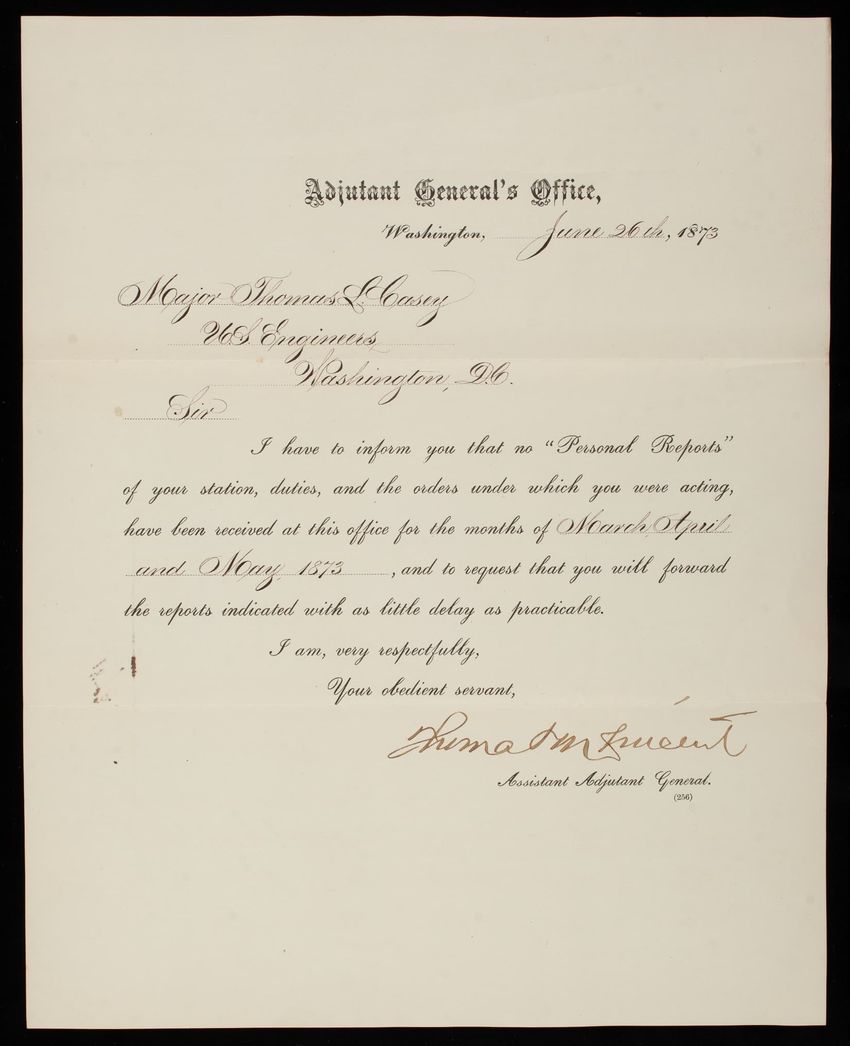 Adjutant General's Office,
Washington, June 26th, 1873
Major Thomas L. Casey
U.S. Engineers
Washington, D.C.
Sir
I have to inform you that no "Personal Reports"
of your station, duties, and the orders under which you were acting,
have been received at this office for the months of March, April
and May 1873, and to request that you will forward
the reports indicated with as little delay as practicable.
I am, very respectfully,
Your obedient servant,
Thomas M Vincent
Assistant Adjutant General.
(256)